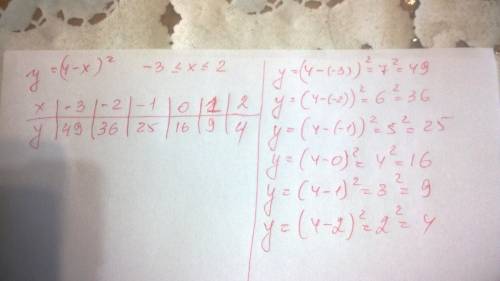 y = (4-x)²   -3 ≤ x ≤ 2
x | -3 | -2 | -1 | 0 | 1 | 2
y | 49 | 36 | 25 | 16 | 9 | 4
y = (4-(-3))² = 7² = 49
y = (4-(-2))² = 6² = 36
y = (4-(-1))² = 5² = 25
y = (4-0)² = 4² = 16
y = (4-1)² = 3² = 9
y = (4-2)² = 2² = 4